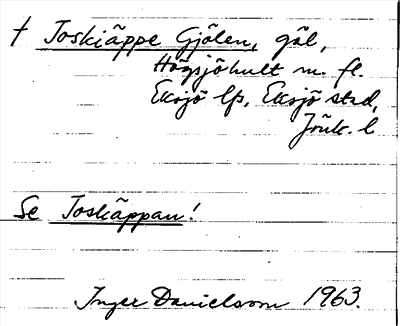 † Joskiäppe Gjölen, gäl,
Högsjöhult m. fl.
Eksjö lfs, Eksjö stad,
Jönk. l
Se Joskäppan!
Inger Danielsson 1963.